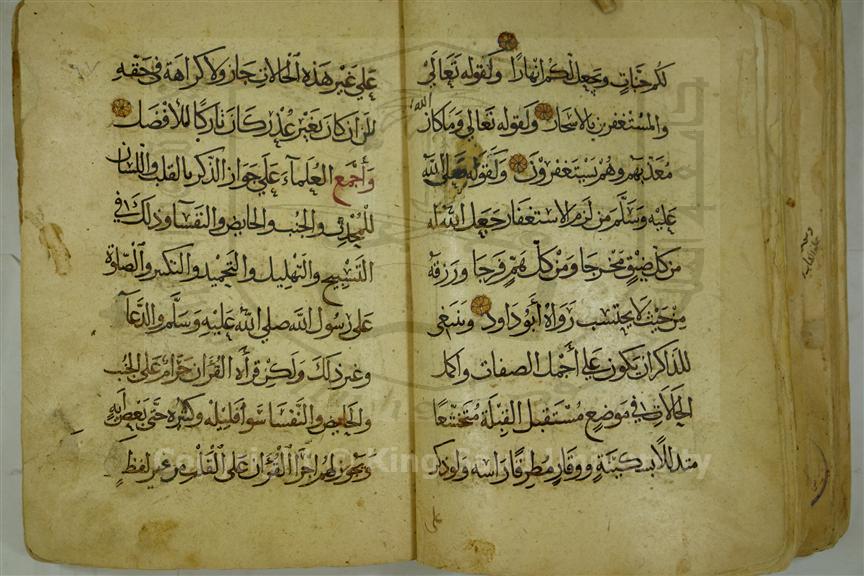 لكم جنات ويجعل لكم انهارا ولقوله تعالى
والمستغفرين بالاسحار ولقوله تعالى وماكان الله
معذبهم وهم يستغفرون ولقوله صلى الله
عليه وسلم من لزم الاستغفار جعل الله له
من كل ضيق مخرجا ومن كل هم فرجا ورزقه
من حيث لا يحتسب رواه أبو داود وينبغي
للذاكر ان يكون على أجمل الصفات واكمل
الحالات في موضع مستقبل القبلة متخشعا
متذللا بسكينة ووقار مطرقا راسه ولو ذكر
على
على غير هذه الحالات جاز ولا كراهة في حقه
لكن ان كان بغير عذر كان تاركا للأفضل
وأجمع العلماء على جواز الذكر بالقلب واللسان
للمحدث والجنب والحايض والنفسا وذلك في
التسبيح والتهليل والتحميد والتكبير والصلوة
على رسول الله صلى الله عليه وسلم والدعآ
وغير ذلك ولكن قرأة القرآن حرام على الجنب
والحايض والنفسا سوا قليله وكثيره حتى بعض اية
ويجوز لهم اجرا القرآن على القلب من غير لفظ